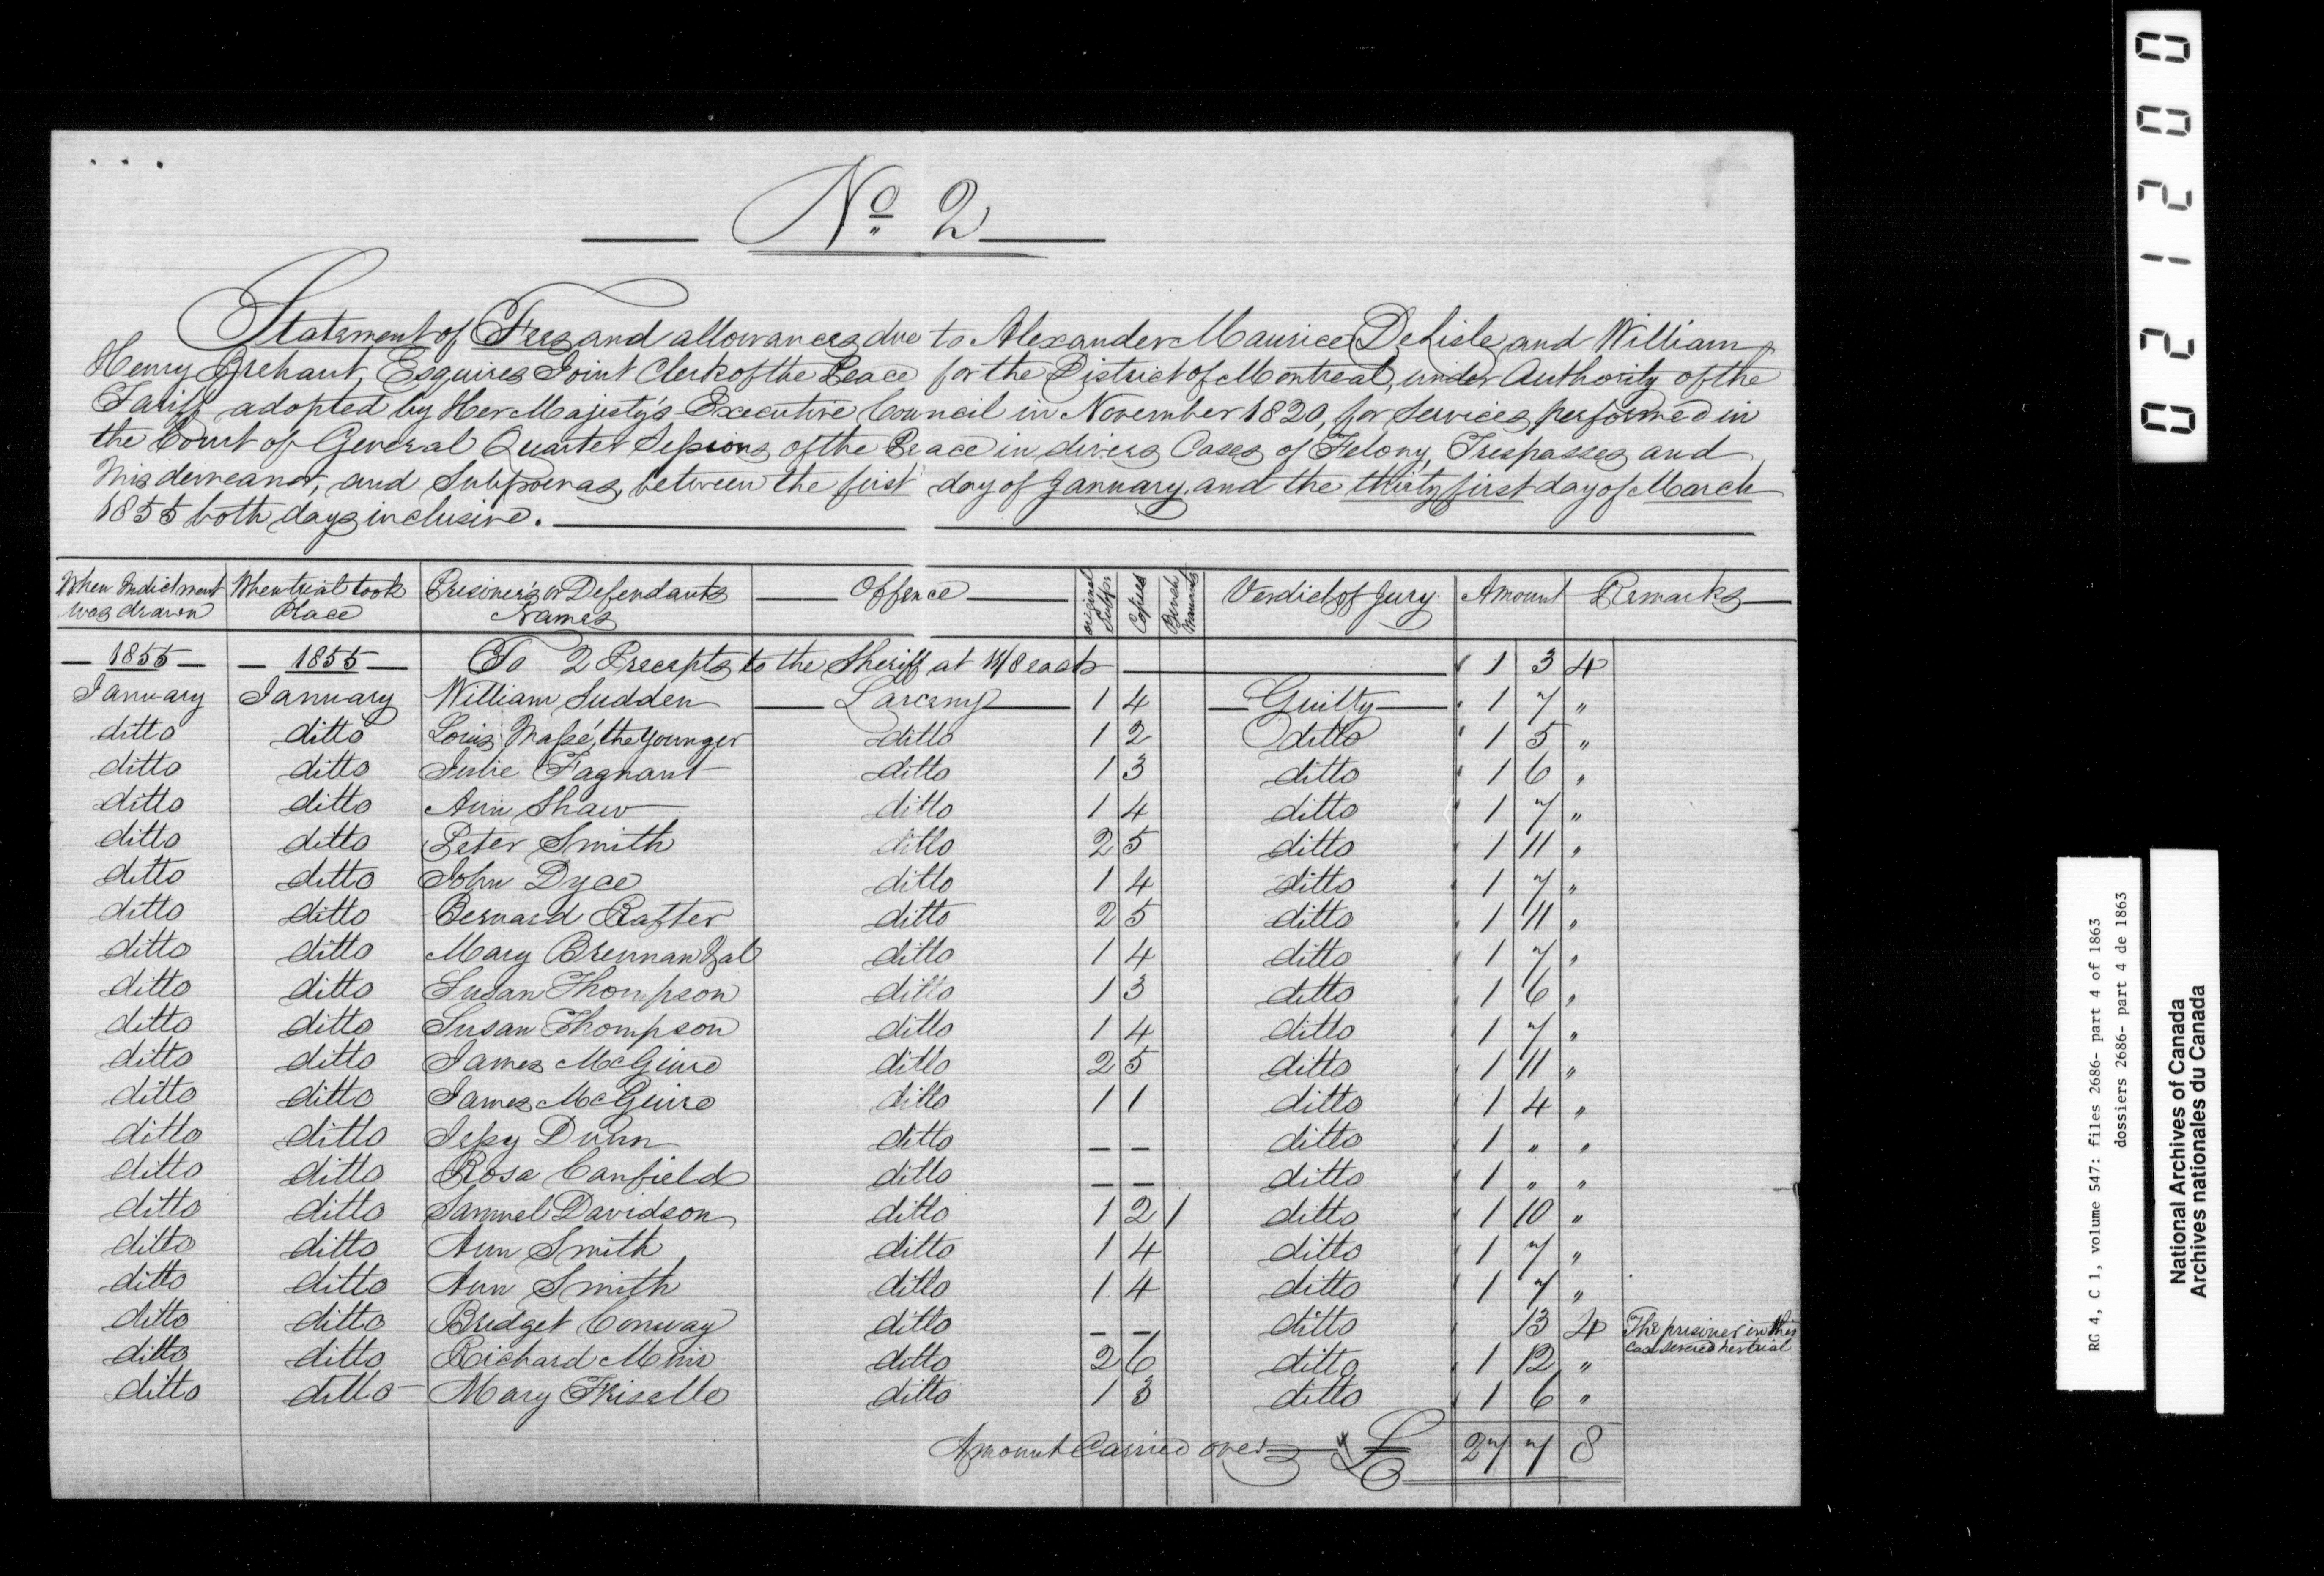 No 2
Statement of Fees and allowances due to Alexander Maurice Delisle and William
Henry Brehaut, Esquires Joint Clerk of the Peace for the District of Montreal, under Authority of the
Tariff adopted by Her Majesty's Executive Council in November 1820, for Services performed in
the Court of General Quarter Sessions of the Peace in divers Cases of Felony, Trespasses and
Misdemeanor, and Subpoenas, between the first day of January, and the thirty first day of March
1855 both days inclusive.
When Indictment was drawn When trial took Place Prisoner's or Defendants Names Offence original Subps Copies Bench Warrants Verdict of Jury Amount Remarks
1855 1855 To 2 Precepts to the Sheriff at 11/8 each 1 3 4
January January William Sudden Larceny 1 4 Guilty 1 7 "
ditto ditto Louis Massé, the younger ditto 1 2 ditto 1 5 "
ditto ditto Julie Fagnant ditto 1 3 ditto 1 6 "
ditto ditto Ann Shaw ditto 1 4 ditto 1 7 "
ditto ditto Peter Smith ditto 2 5 ditto 1 11 "
ditto ditto John Dyce ditto 1 4 ditto 1 7 "
ditto ditto Bernard Rafter ditto 2 5 ditto 1 11 "
ditto ditto Mary Brennan & al ditto 1 4 ditto 1 7 "
ditto ditto Susan Thompson ditto 1 3 ditto 1 6 "
ditto ditto Susan Thompson ditto 1 4 ditto 1 7 "
ditto ditto James McGuire ditto 2 5 ditto 1 11 "
ditto ditto James McGuire ditto 1 1 ditto 1 4 "
ditto ditto Jessy Dunn ditto – – ditto 1 " "
ditto ditto Rosa Canfield ditto – – ditto 1 " "
ditto ditto Samuel Davidson ditto 1 2 1 ditto 1 10 "
ditto ditto Ann Smith ditto 1 4 ditto 1 7 "
ditto ditto Ann Smith ditto 1 4 ditto 1 7 "
ditto ditto Bridget Conway ditto – – ditto 13 4 The prisoner in this
case severed her trial
ditto ditto Richard Muir ditto 2 6 ditto 1 12 "
ditto ditto Mary Friselle ditto 1 3 ditto 1 6 "
Amount Carried over £ 27 7 8
021200
RG 4, C 1, volume 547: files 2686- part 4 of 1863
dossiers 2686- part 4 de 1863
National Archives of Canada
Archives nationales du Canada